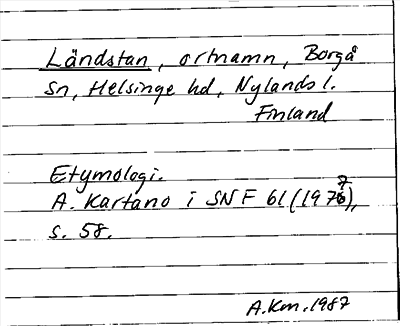 Ländstan, ortnamn, Borgå
Sn, Helsinge hd, Nylands l.
Finland
Etymologi.
A. Kartano i SNF 61 (1977),
s. 58.
A.Km. 1987